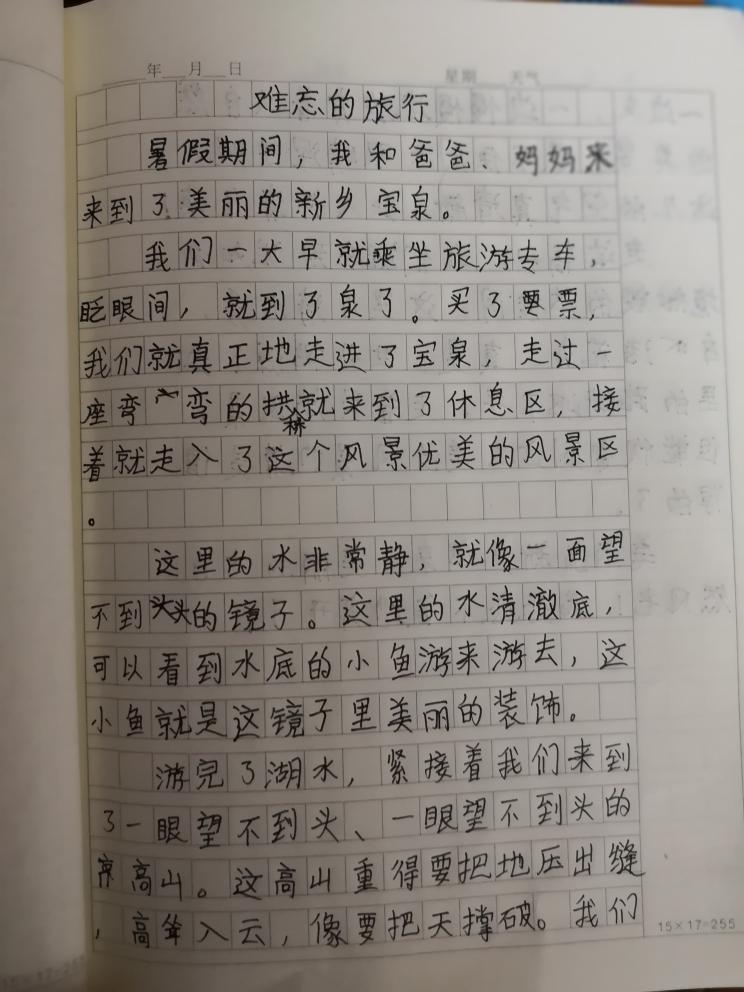 年 月 日 星期 天气
难忘的旅行
暑假期间，我和爸爸、妈妈来
来到了美丽的新乡宝泉。
我们一大早就乘坐旅游专车，
眨眼间，就到了泉了。买了要票，
我们就真正地走进了宝泉，走过一
座弯弯的拱桥就来到了休息区，接
着就走入了这个风景优美的风景区
。
这里的水非常静，就像一面望
不到头的镜子。这里的水清澈底，
可以看到水底的小鱼游来游去，这
小鱼就是这镜子里美丽的装饰。
游完了湖水，紧接着我们来到
了一眼望不到头、一眼望不到头的
高山。这高山重得要把地压出缝
，高耸入云，像要把天撑破。我们
15×17=255